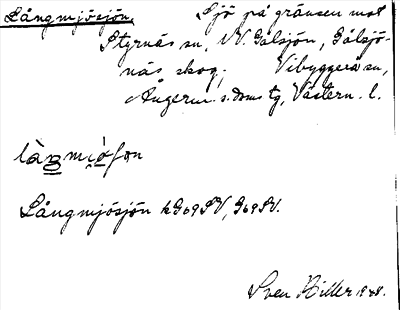 Långmjösjön, Sjö på gränsen mot
Styrnäs sn, N. Gålsjön, Gålsjö-
näs skog; Vibyggerå sn,
Ångerm. s. doms tg, Västern. l.
làŋmjö̀ʃọn
Långmjösjön kG69SV, G69SV.
Sven Hiller 1948.